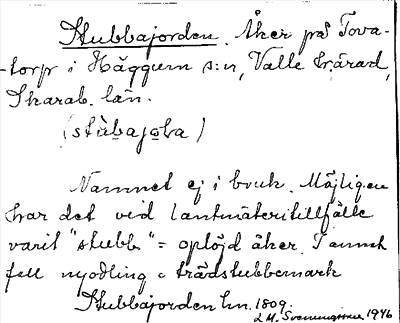 Stubbajorden. Åker på Tova-
-torp i Häggum s:n, Valle härad,
Skarab. län.
(stùbajoḷa)
Namnet ej i bruk. Möjligen
har det vid lantmäteritillfälle
varit "stubb" = oplöjd åker. I annat
fall nyodling å trädstubbemark
Stubbajorden hm. 1809.
L H. Svenungsson 1946